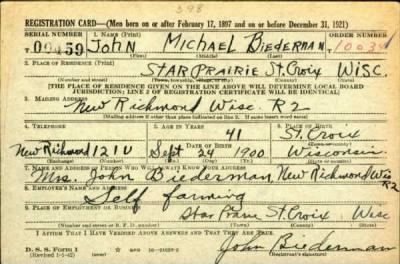 598
REGISTRATION CARD—(Men born on or after February 17, 1897 and on or before December 31, 1921)
SERIAL NUMBER 1. NAME (Print) ORDER NUMBER
00459 John Michael Biederman 10034
(First) (Middle) (Last)
2. PLACE OF RESIDENCE (Print)
STAR PRAIRIE St. Croix Wisc.
(Number and street) (Town, township, village, or city) (County) (State)
[THE PLACE OF RESIDENCE GIVEN ON THE LINE ABOVE WILL DETERMINE LOCAL BOARD
JURISDICTION; LINE 2 OF REGISTRATION CERTIFICATE WILL BE IDENTICAL]
3. MAILING ADDRESS
New Richmond Wisc. R2
[Mailing address if other than place indicated on line 2. If same insert word same]
4. TELEPHONE 5. AGE IN YEARS 6. PLACE OF BIRTH
41 St. Croix
DATE OF BIRTH
New Richmond 121U Sept. 24 1900 Wisconsin
(Exchange) (Number) (Mo.) (Day) (Yr.) (State or country)
7. NAME AND ADDRESS OF PERSON WHO WILL ALWAYS KNOW YOUR ADDRESS
Mrs. John Biederman, New Richmond Wis R2
8. EMPLOYER'S NAME AND ADDRESS
Self farming
9. PLACE OF EMPLOYMENT OR BUSINESS
Star Prairie St. Croix Wisc
(Number and street or R. F. D. number) (Town) (County) (State)
I AFFIRM THAT I HAVE VERIFIED ABOVE ANSWERS AND THAT THEY ARE TRUE.
D. S. S. Form 1
(Revised 1-1-42) John Biederman
(Registrant's signature)